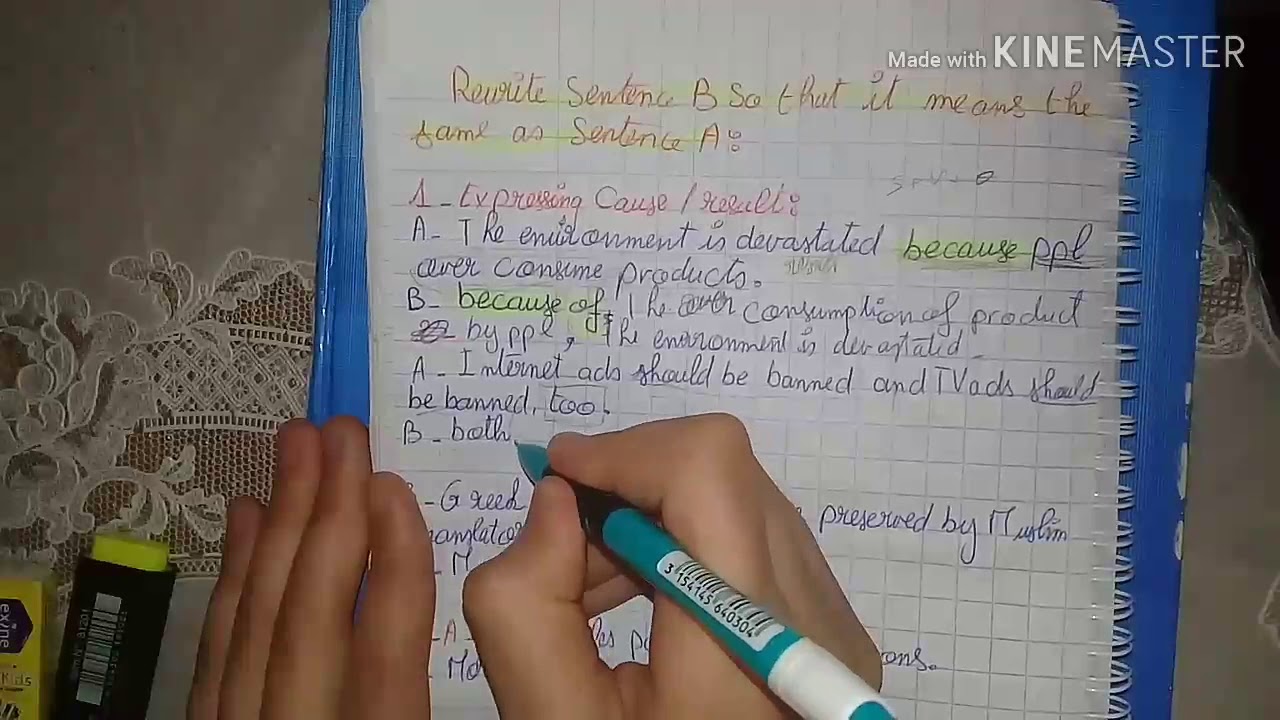 Made with KINEMASTER
Rewrite Sentence B So that it means the
same as Sentence A:
S + V + O
1 - Expressing Cause / result:
A - The environment is devastated because ppl
over consume products.
B - because of the over consumption of product
by ppl, the environment is devastated.
A - Internet ads should be banned and TV ads should
be banned, too.
B - both
Greek preserved by Muslim
A -
ons.
exine
Kids
Item N° 81201
3 154145 640304